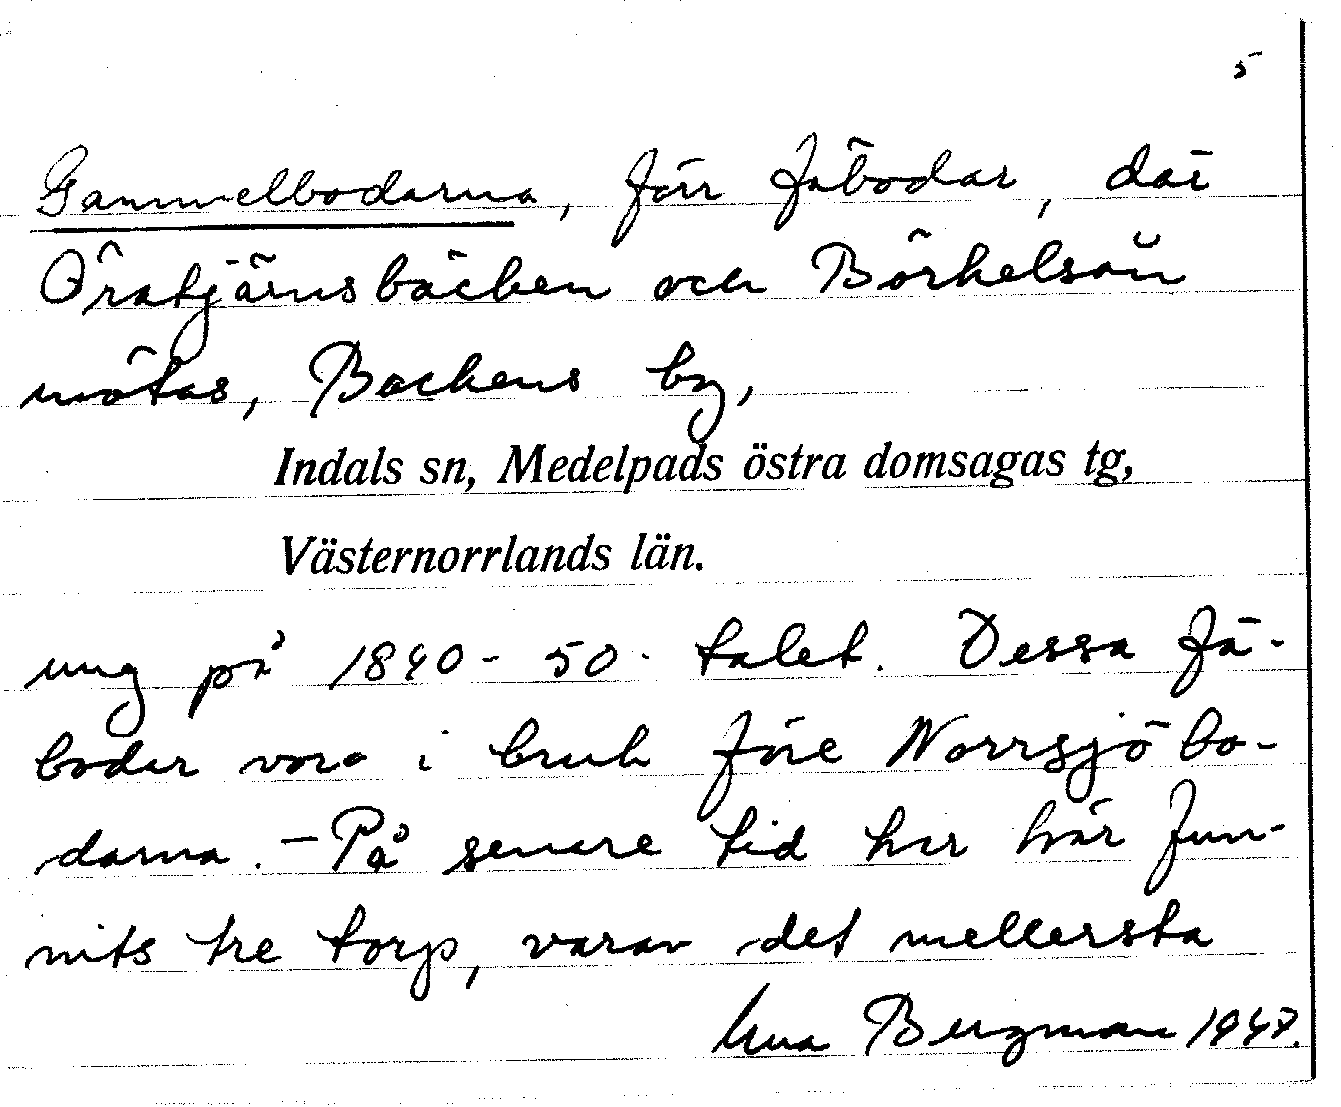 5
Gammelbodarna, förr fäbodar, där
Öratjärnsbäcken och Börkelsån
mötas, Backens by,
Indals sn, Medelpads östra domsagas tg,
Västernorrlands län.
ung på 1840-50-talet. Dessa fä-
bodar voro i bruk före Norrsjöbo-
darna. - På senare tid har här fun-
nits tre torp, varav det mellersta
Bergman 1947.